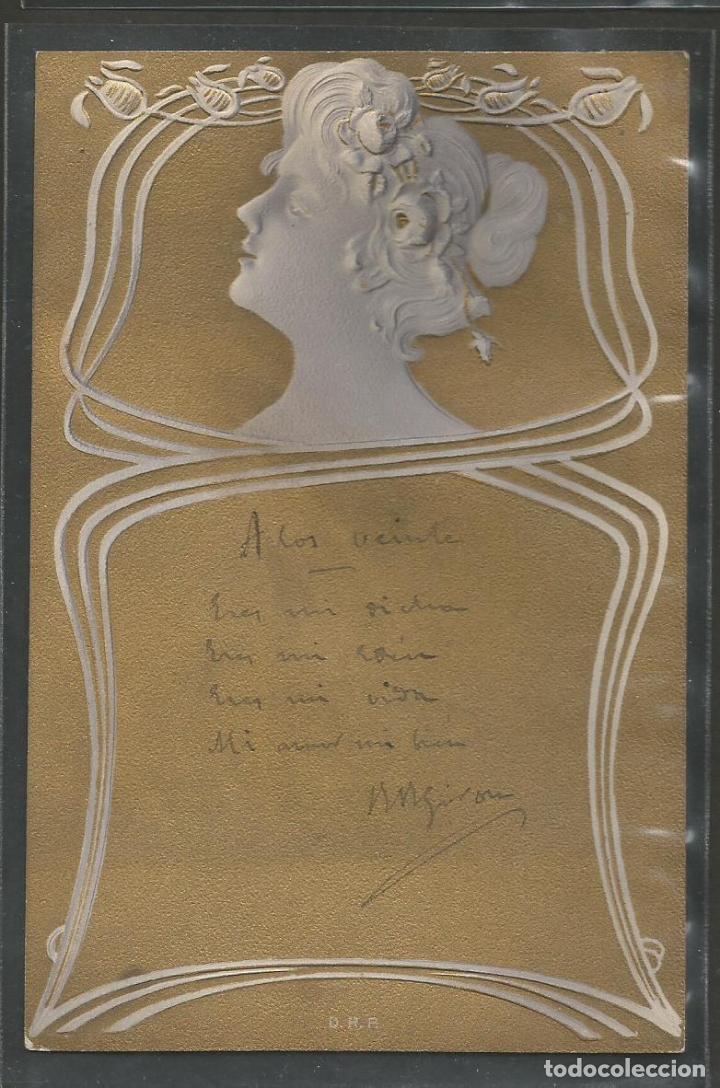 A los veinte
Eres mi dicha
Eres mi edén
Eres mi vida
Mi amor mi bien
D.R.P.
todocoleccion
todocoleccion.net